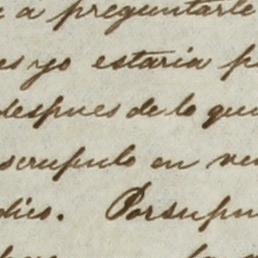 a preguntarle
yo estaria
despues de lo que
scrupulo en ve
dico. Porsupu